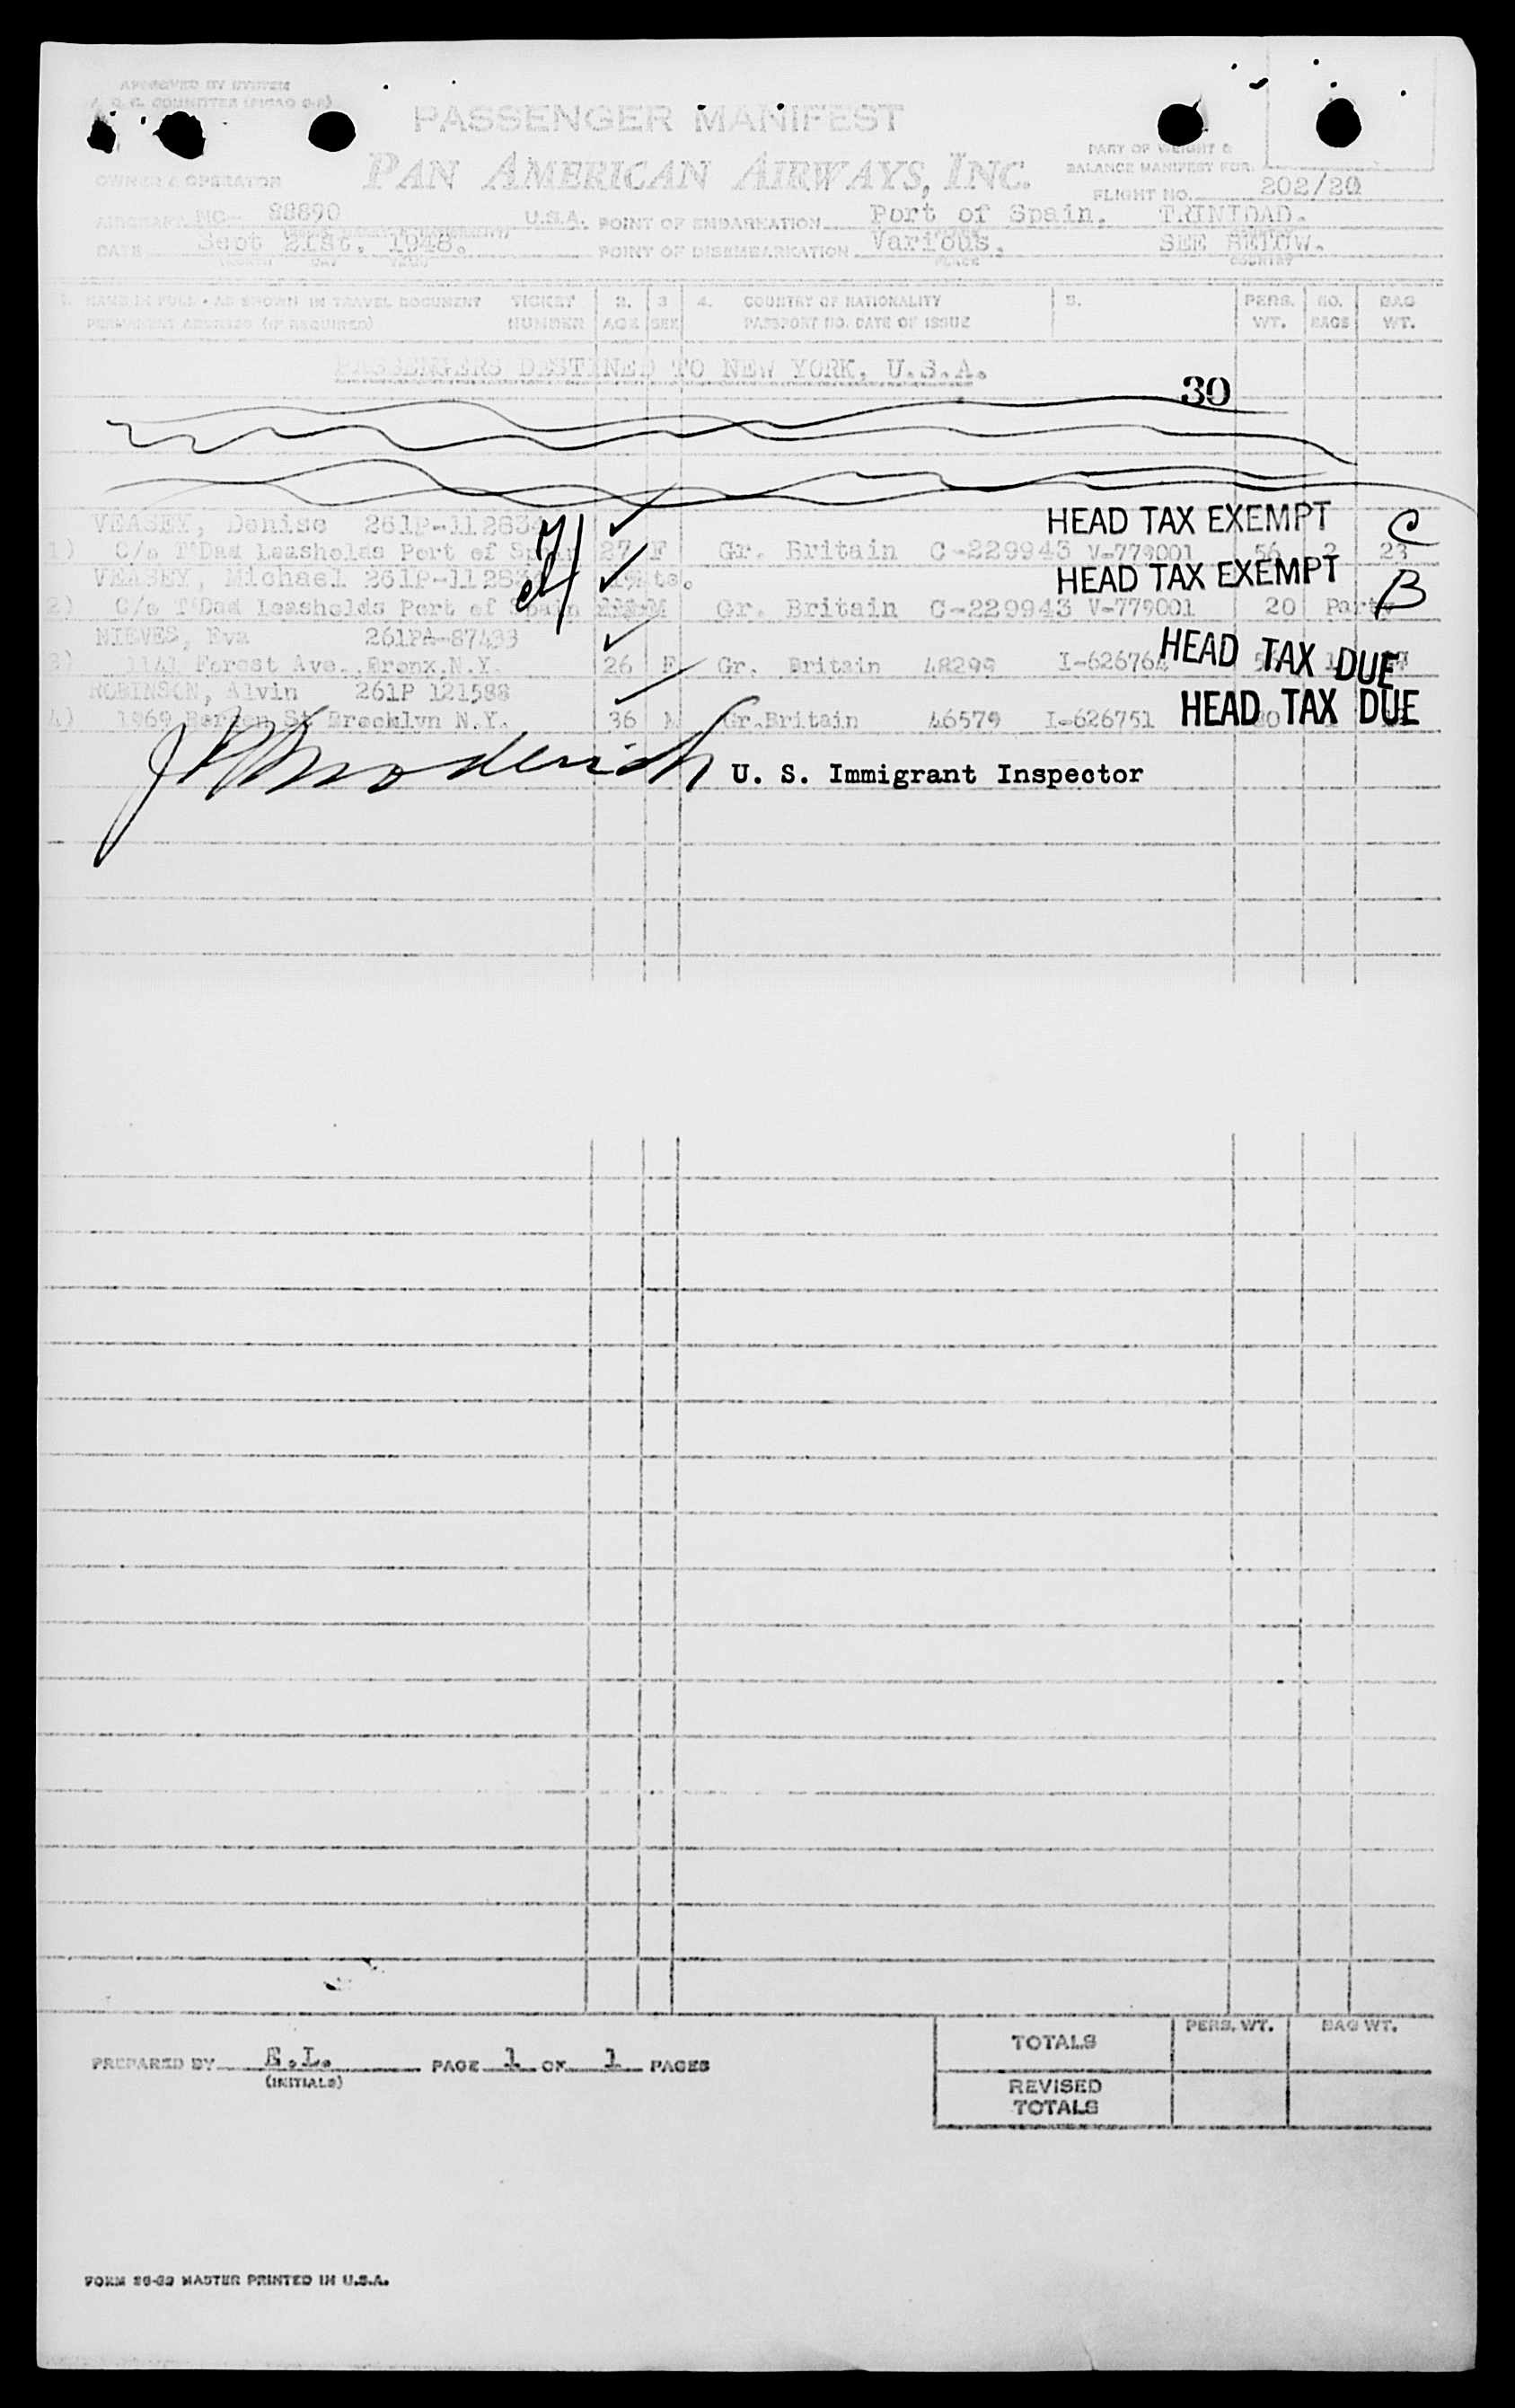 APPROVED BY SYSTEM
PASSENGER MANIFEST
PAN AMERICAN AIRWAYS, INC.
PART OF WEIGHT &
BALANCE MANIFEST FOR
OWNER & OPERATOR
FLIGHT NO. 202/20
AIRCRAFT NC- 88890 U.S.A. POINT OF EMBARKATION Port of Spain. TRINIDAD.
DATE Sept 21st. 1948. POINT OF DISEMBARKATION Various. SEE BELOW.
PLACE COUNTRY
1. NAME IN FULL - AS SHOWN IN TRAVEL DOCUMENT TICKET 2. 3 4. COUNTRY OF NATIONALITY 5. PERS. NO. BAG
PERMANENT ADDRESS (IF REQUIRED) NUMBER AGE SEX PASSPORT NO. DATE OF ISSUE WT. BAGS WT.
PASSENGERS DESTINED TO NEW YORK, U.S.A.
30
VEASEY, Denise 261P-112834 HEAD TAX EXEMPT C
1) C/o T'Dad Leaseholds Port of Spain 27 F Gr. Britain C-229943 V-779001 56 2 23
VEASEY, Michael HEAD TAX EXEMPT B
2) C/o T'Dad Leaseholds Port of Spain M Gr. Britain C-229943 V-779001 20 Party
NIEVES, Eva 261PA-87433 HEAD TAX DUE
3) 1141 Forest Ave. Bronx.N.Y. 26 F Gr. Britain 48299 I-626764
ROBINSON, Alvin 261P 121588 HEAD TAX DUE
4) 1969 Bergen St Brooklyn N.Y. 36 M Gr.Britain 46579 I-626751
U. S. Immigrant Inspector
PREPARED BY E.L. PAGE 1 OF 1 PAGES
(INITIALS)
TOTALS PERS. WT. BAG WT.
REVISED
TOTALS
FORM 26-33 MASTER PRINTED IN U.S.A.